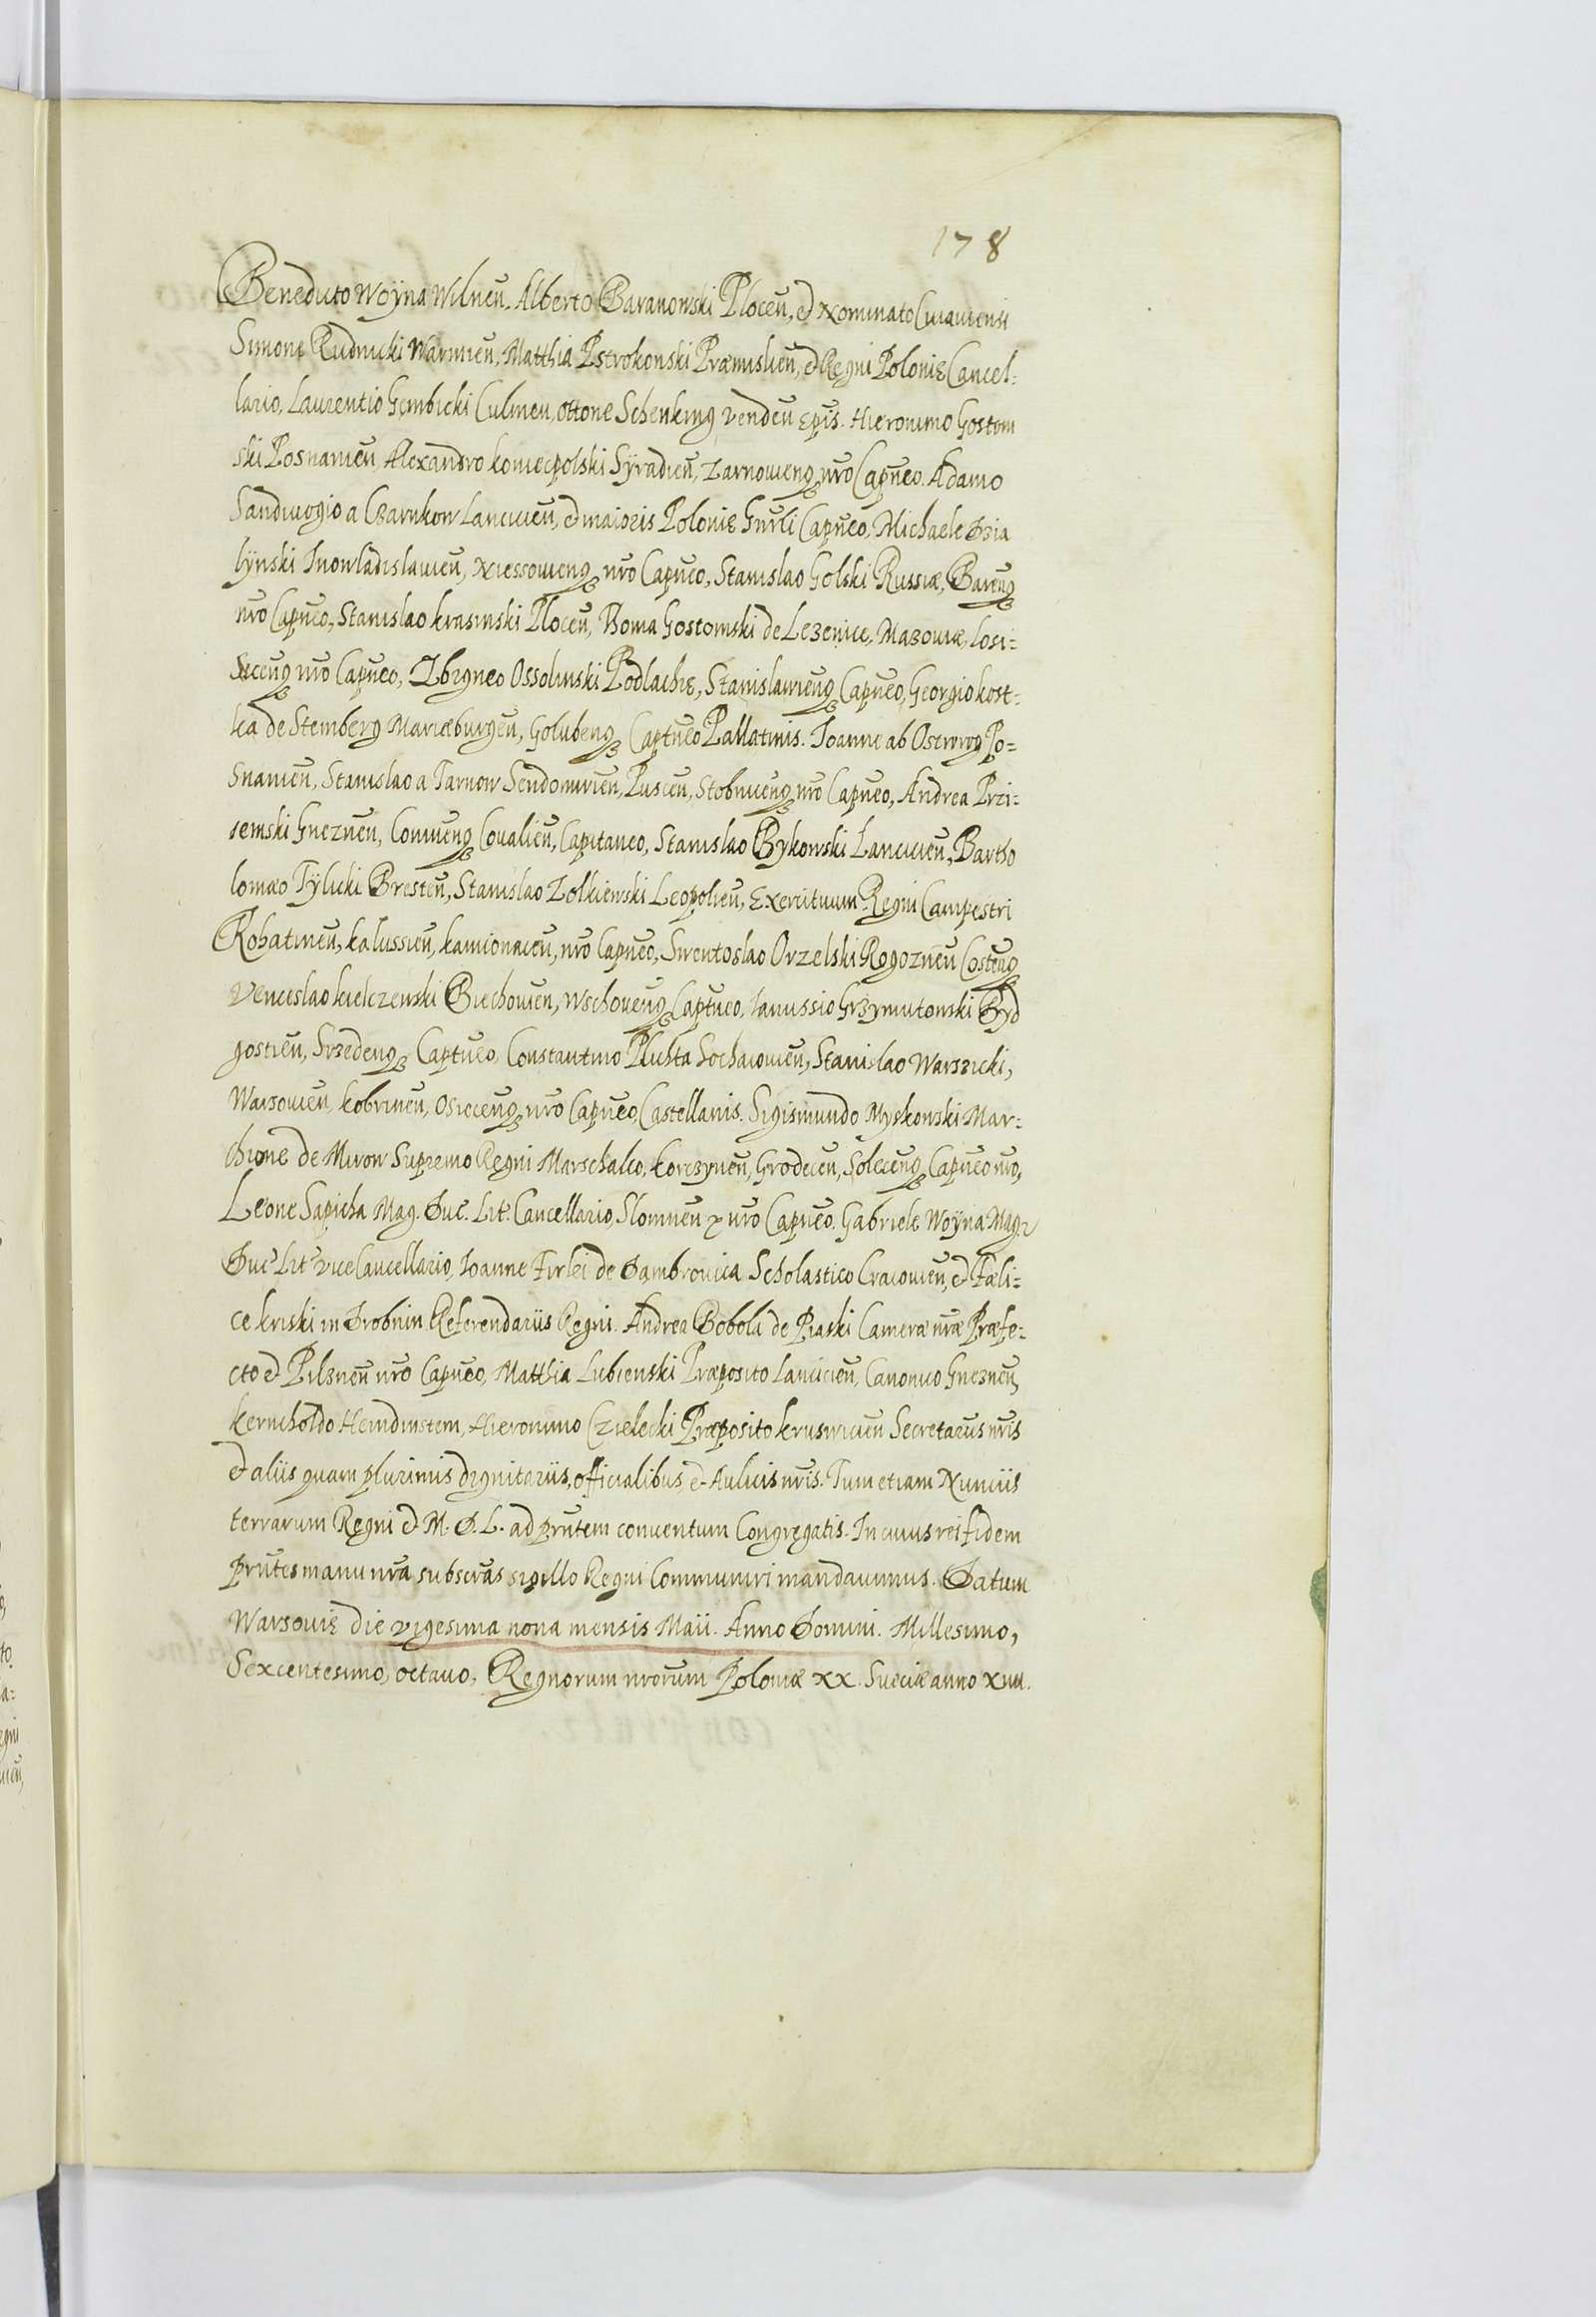 178
Benedicto Woÿna Wilneñ. Alberto Baranowski Ploceñ, et Nominato Cuiauiensi
Simone Rudnicki Warmieñ, Matthia Pstrokonski Præmislieñ, et Regni Poloniæ Cancel=
lario, Laurentio Gembicki Culmeñ, Ottone Schenking Vendeñ Epīs. Hieronimo Gostom
ski Posnanieñ, Alexandro koniecpolski Sÿradieñ, Zarnowieñq3 nr̄o Capñeo. Adamo
Sandiuogio a Czarnkow Lanciciēn, et maioris Poloniæ Gnr̄li Capñeo, Michaele Dzia
lÿnski Inowladislauieñ, Niessowieñq3 nr̄o Capñeo, Stanislao Golski Russiæ, Bareñq3
nr̄o Capñeo, Stanislao krasinski Ploceñ, Thoma Gostomski de Lezenice, Mazouiæ, Losi=
ciceñq3 nr̄o Capñeo, Zbigneo Ossolinski Podlachiæ, Stanislawieñq3 Capñeo, Georgio kost=
ka de Stemberg Mariæburgeñ, Golubeñq3 Captñeo Pallatinis. Ioanne ab Ostrorog Po=
snanieñ, Stanislao a Tarnow Sendomirieñ, Pusceñ, Stobniceñq3 nr̄o Capñeo, Andrea Przi=
iemski Gnezneñ, Conineñq3 Coualieñ, Capitaneo, Stanislao Bykowski Lancicieñ, Bartho
lomæo Tÿlicki Bresteñ, Stanislao Zolkiewski Leopolieñ, Exercituum Regni Campestri
Rohatineñ, kalussieñ, kamionacieñ, nr̄o Capñeo, Swentoslao Orzelski Rogozneñ Costeñq3
Venceslao kielczewski Biechowieñ, Wschoueñq3 Captñeo, Ianussio Grzymutowski Byd
gostieñ, Srzedeñq3 Captñeo, Constantino Plichta Sochaczouieñ, Stanislao Warszicki,
Warsouieñ, kobrineñ, Osieceñq3 nr̄o Capñeo, Castellanis. Sigismundo Myskowski Mar=
chione de Mirow Supremo Regni Marschalco, korczyneñ, Grodeceñ, Soleceñq3 Capñeo nr̄o,
Leone Sapieha Mag. Duc. Lit. Cancellario, Slonimeñ nr̄o Capñeo. Gabriele Woÿna Mag.
Duc. Lit. vice Cancellario, Ioanne Firlei de Dambrouica Scholastico Cracouieñ, et Fæli=
ce kriski in Drobnin Referendariis Regni. Andrea Bobola de Piaski Cameræ nr̄æ Præfe=
cto et Pilzneñ nr̄o Capñeo, Matthia Lubienski Præposito Lancicieñ, Canonico Gnezneñ,
Hieronimo Czielecki Præposito kruswicieñ Secretariis nr̄is
et aliis quam plurimis dignitariis, officialibus, et Aulicis nr̄is. Tum etiam Nunciis
terrarum Regni et M. D. L. ad prn̄tem conuentum Congregatis. In cuius rei fidem
prn̄tes manu nr̄a subscr̄as sigillo Regni Communiri mandauimus. Datum
Warsouiæ die vigesima nona mensis Maii. Anno Domini. Millesimo,
Sexcentesimo, octauo, Regnorum nr̄orum Poloniæ XX. Sueciæ anno